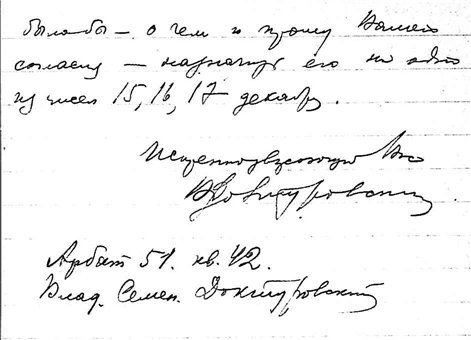 было бы – о чем и прошу Вашего
согласия – назначить его на одно
из чисел 15, 16, 17 декабря.
Искренно уважающий Вас
В Доктуровский
Арбат 51. кв. 42.
Влад. Семен. Доктуровский